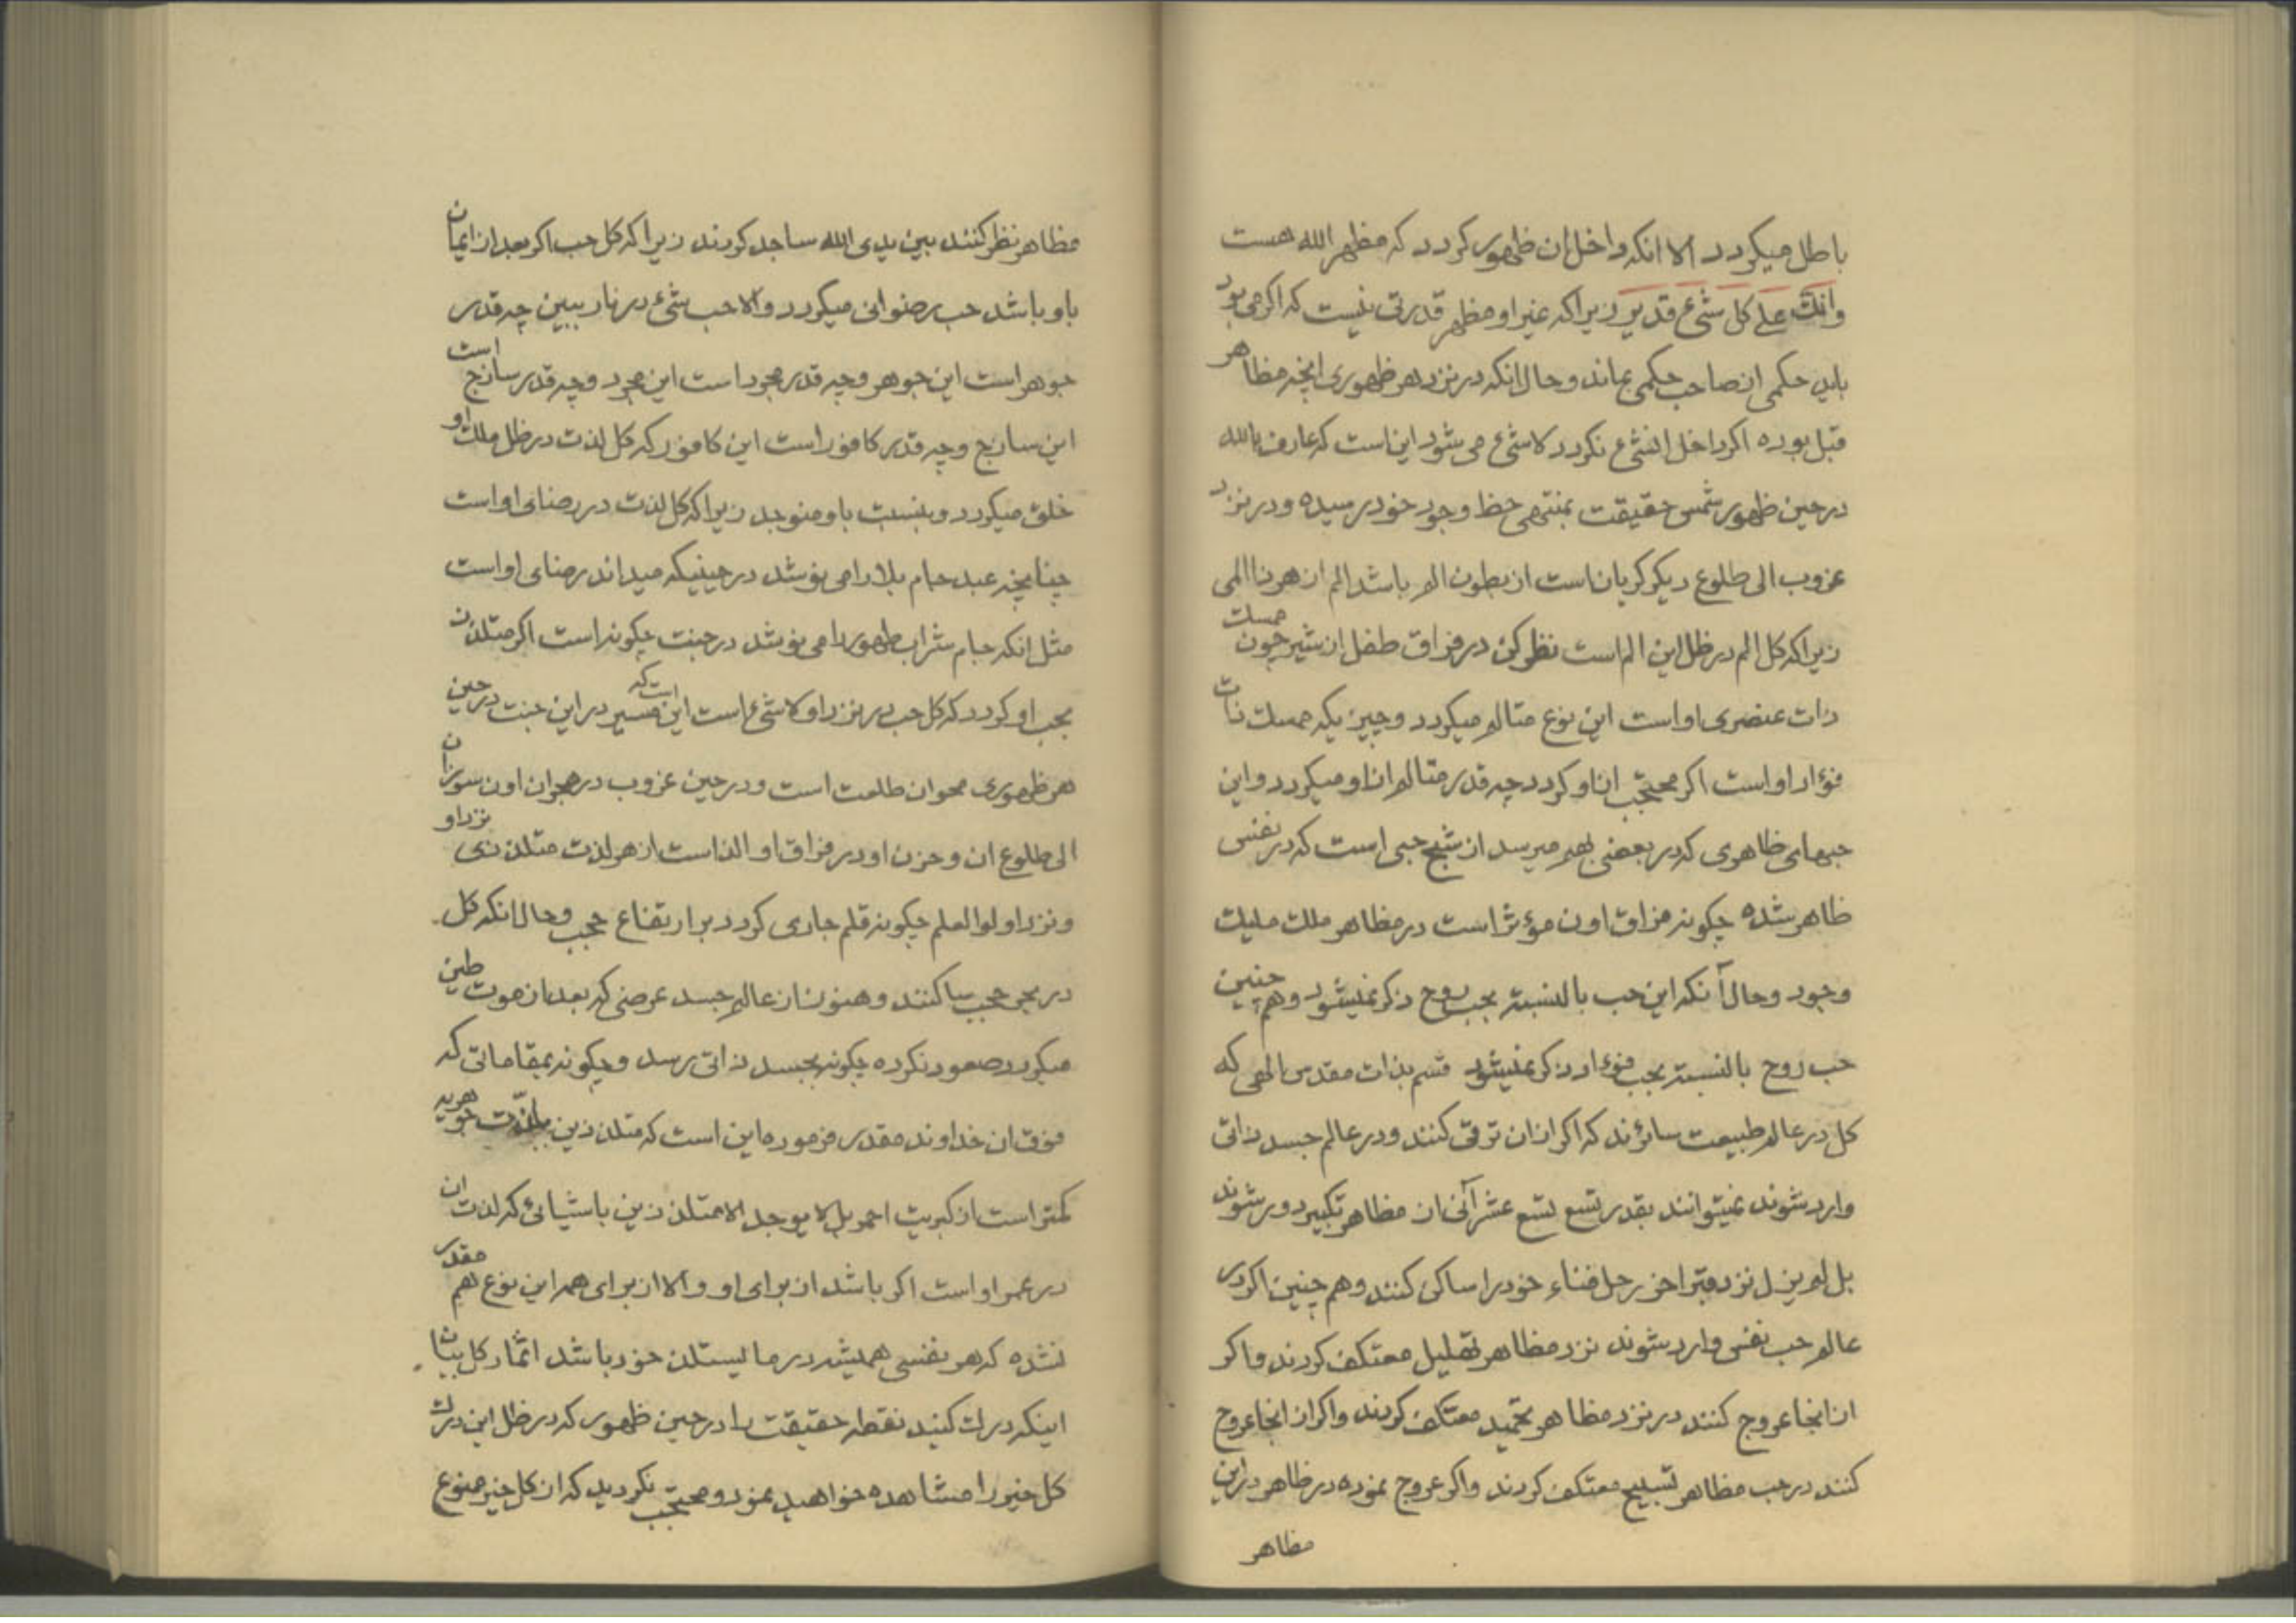 باطل میکردد الا انکه داخل ان ظهور کردد که مظهر الله هست
وانک علی کل شیء قدیر زیرا که غیر او مظهر قدرتی نیست که اکر می بود
باید حکمی از صاحب حکمی بماند و حال انکه در نزد هر ظهوری انچه مظاهر
قبل بوده اکر داخل انشیء نکردد لاشیء می شود این است که عارف بالله
در حین ظهور شمس حقیقت بمنتهی حظ وجود خود رسیده و در نزد
غروب الی طلوع دیکر کریان است از بطون الم باشد الم از هر نا المی
زیرا که کل الم در ظل این الم است نظر کن در فراق طفل از شیر چون ممسک
ذات عنصری او است این نوع متالم میکردد و چیزیکه ممسک ذات
فؤاد او است اکر محتجب از او کردد چه قدر متالم از او میکردد و این
حبهای ظاهری که در بعضی بهم میرسد از شبح حبی است که در نفس
ظاهر شده چکونه فراق اون مؤثر است در مظاهر ملک ملیک
وجود و حال آنکه این حب بالنسبة بحب روح ذکر نمیشود و هم چنین
حب روح بالنسبة بحب فؤاد ذکر نمیشود قسم بذات مقدس الهی که
کل در عالم طبیعت سائرند که اکر از ان ترقی کنند و در عالم جسد ذاتی
وارد شوند نمیتوانند بقدر تسع تسع عشر آنی از مظاهر تکبیر دور شوند
بل لم یزل نزد قبر اخر رحل فناء خود را ساکن کنند و هم چنین اکر در
عالم حب نفس وارد شوند نزد مظاهر تهلیل معتکف کردند و اکر
از انجا عروج کنند در نزد مظاهر تحمید معتکف کردند و اکر از انجا عروج
کنند در حب مظاهر تسبیح معتکف کردند و اکر عروج نموده در ظاهر در این
مظاهر
مظاهر نظر کنند بین یدی الله ساجد کردند زیرا که کل حب اکر بعد از ایمان
باو باشد حب رضوانی میکردد و الا حب شیء در نار ببین چه قدر
جوهر است این جوهر و چه قدر مجرد است این مجرد و چه قدر ساذج است
این ساذج و چه قدر کافور است این کافور که کل لذت در ظل ملک او
خلق میکردد و بنسبت باو متوجد زیرا که کل لذت در رضای او است
چنانچه عبد جام بلا را می نوشد در حینیکه میداند رضای او است
مثل انکه جام شراب طهور را می نوشد در جنت چکونه است اکر متلذذ
بحب او کردد که کل حب در نزد او لاشیء است این است که مسیر در این جنت در حین
هر ظهوری محو ان طلعت است و در حین غروب در هجران اون سوزان
الی طلوع ان و حزن او در فراق او الذ است از هر لذت متلذذی نزد او
و نزد اولو العلم چکونه قلم جاری کردد بر ارتفاع حجب و حال انکه کل
در بحر حجب سباکنند و هنوز از عالم جسد عرضی که بعد از موت طین
میکردد صعود نکرده چکونه بجسد ذاتی رسد و چکونه بمقاماتی که
فوق ان خداوند مقدر فرموده این است که متلذذین بلذت جوهریه
کمتر است از کبریت احمر بل لا یوجد الا متلذذین باشیائی که لذت ان
در عمر او است اکر باشد از برای او و الا از برای همه این نوع هم مقدر
نشده که هر نفسی همیشه در ما یستلذ خود باشد اثمار کل بیان
اینکه درک کنید نقطه حقیقت را در حین ظهور که در ظل این درک
کل خیر را مشاهده خواهید نمود و محتجب نکردید که از کل خیر ممنوع